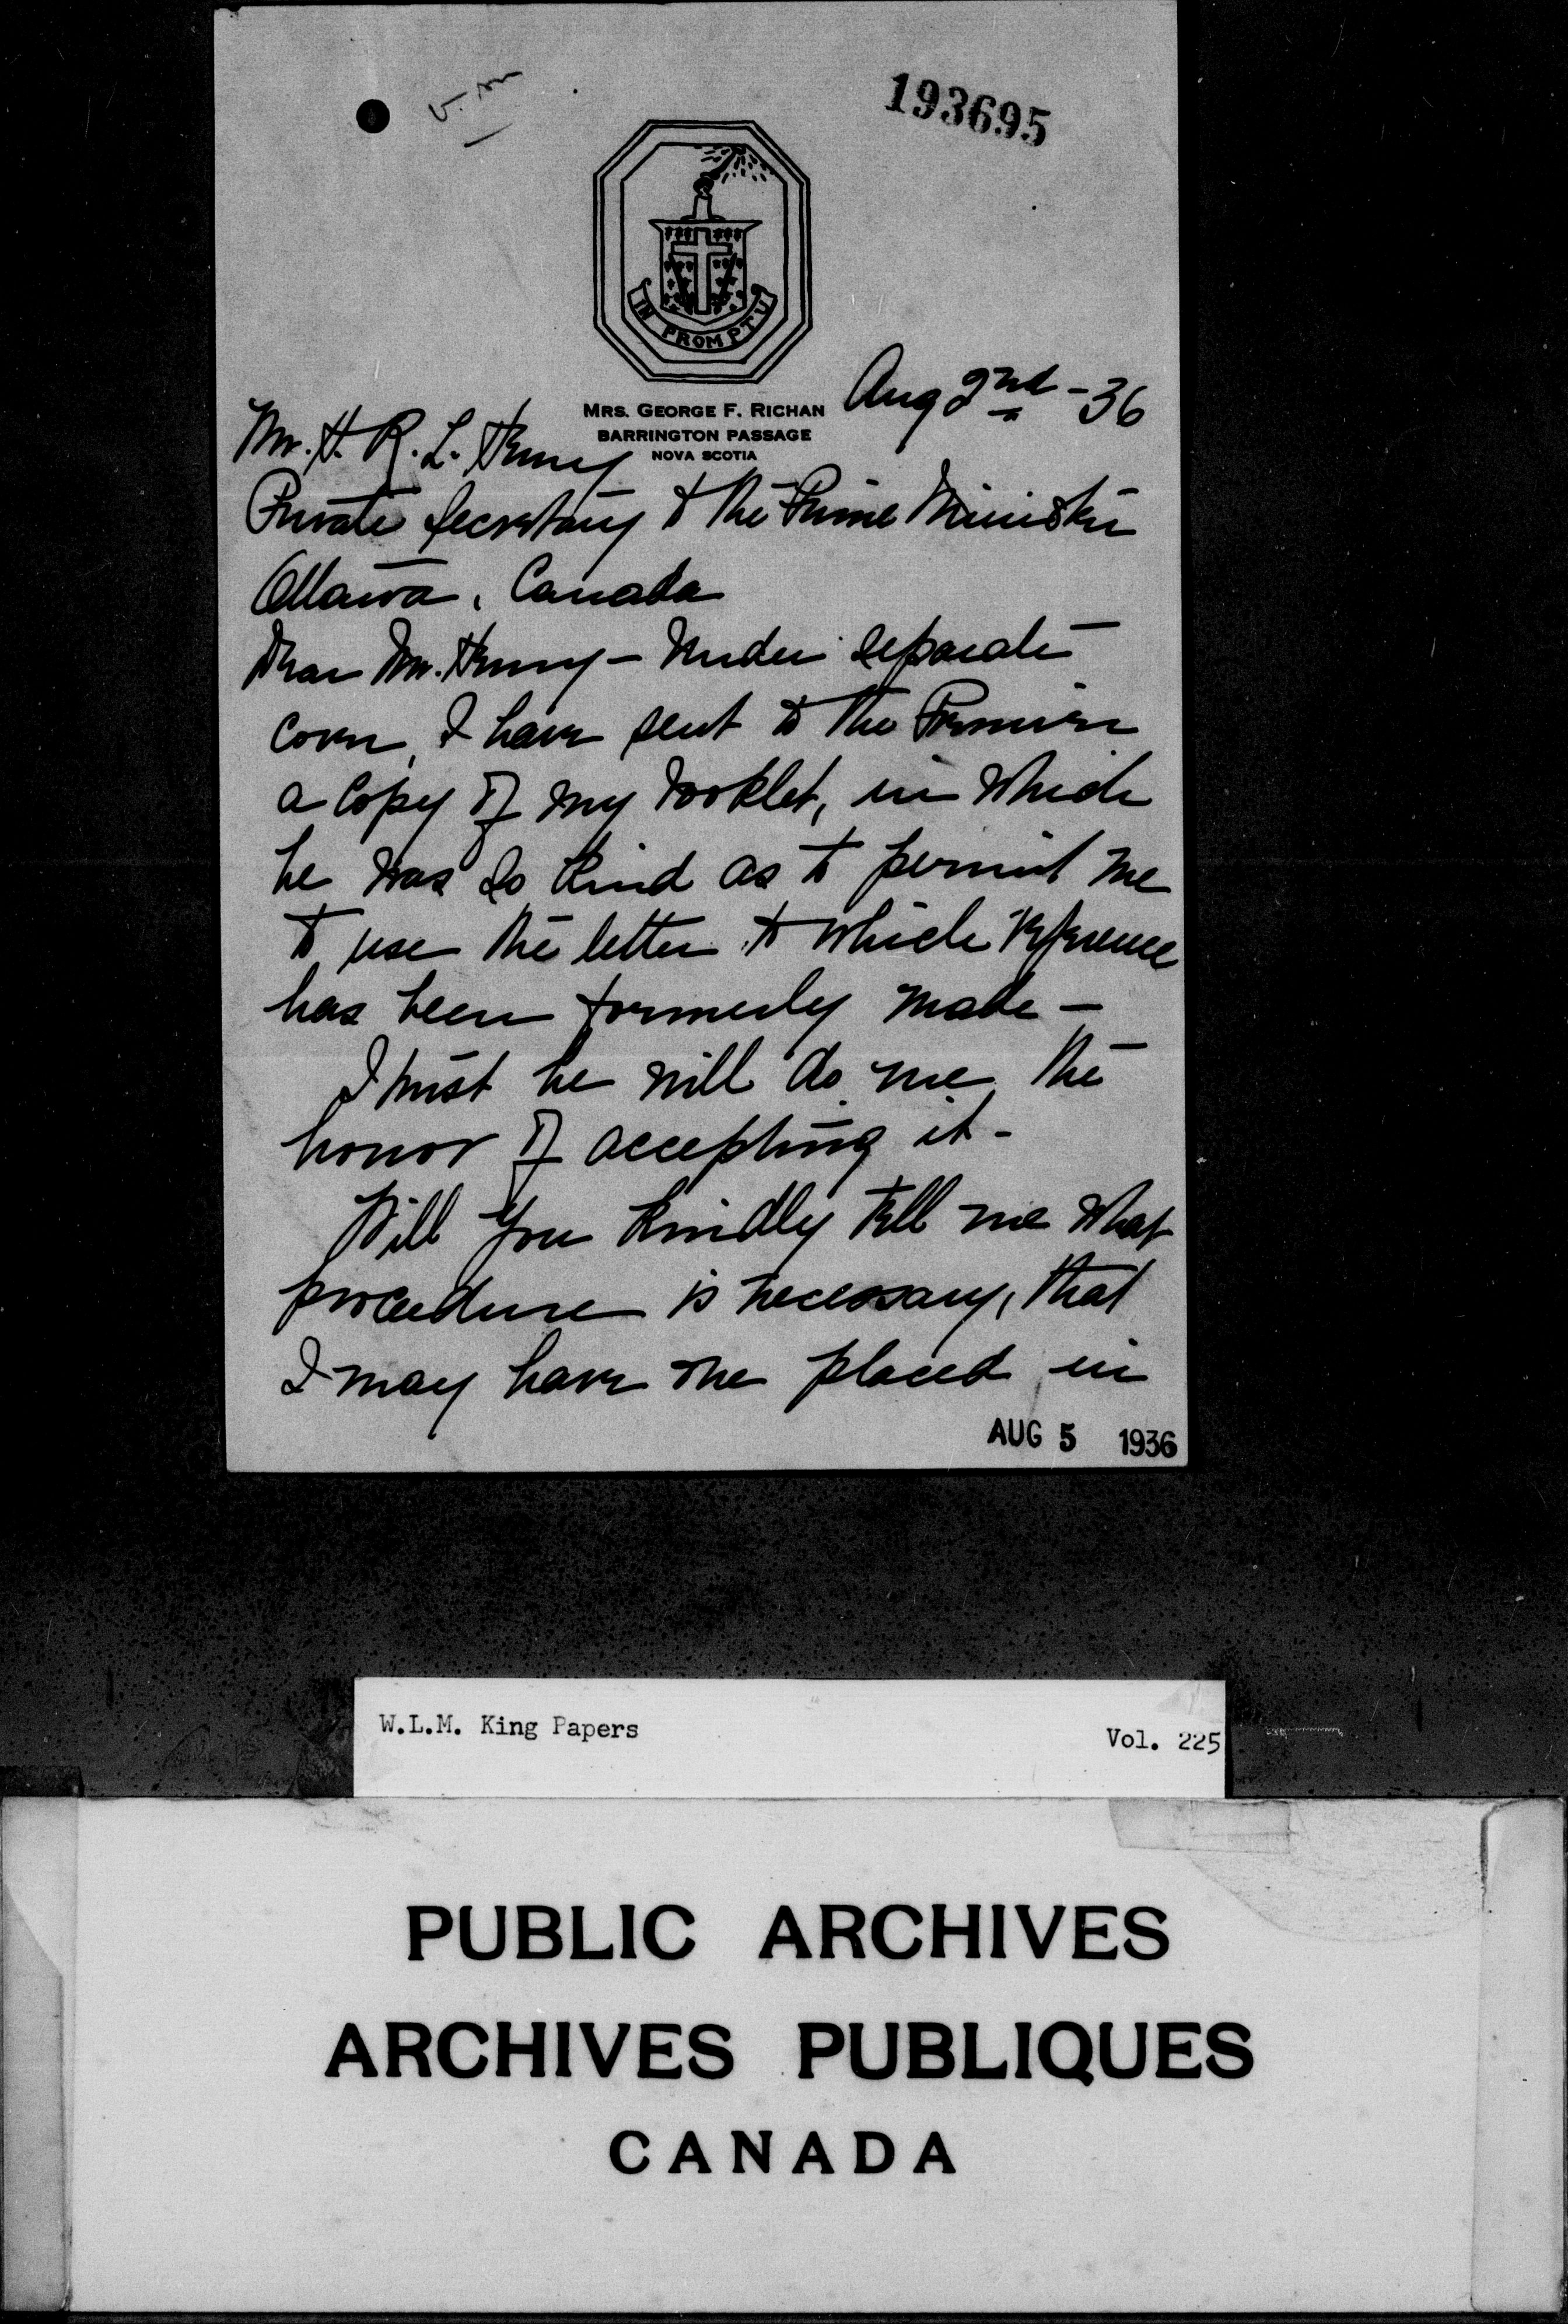 193695
IN PROMPTU
Aug 2nd - 36
MRS. GEORGE F. RICHAN
BARRINGTON PASSAGE
NOVA SCOTIA
Mr. H. R. L. Henry
Private Secretary to the Prime Minister
Ottawa, Canada
Dear Mr. Henry - Under separate
cover, I have sent to the Premier
a copy of my booklet, in which
he was so kind as to permit me
to use the letter to which reference
has been formerly made -
I trust he will do me the
honor of accepting it -
Will you kindly tell me what
procedure is necessary, that
I may have one placed in
AUG 5 1936
W.L.M. King Papers
Vol. 225
PUBLIC ARCHIVES
ARCHIVES PUBLIQUES
CANADA